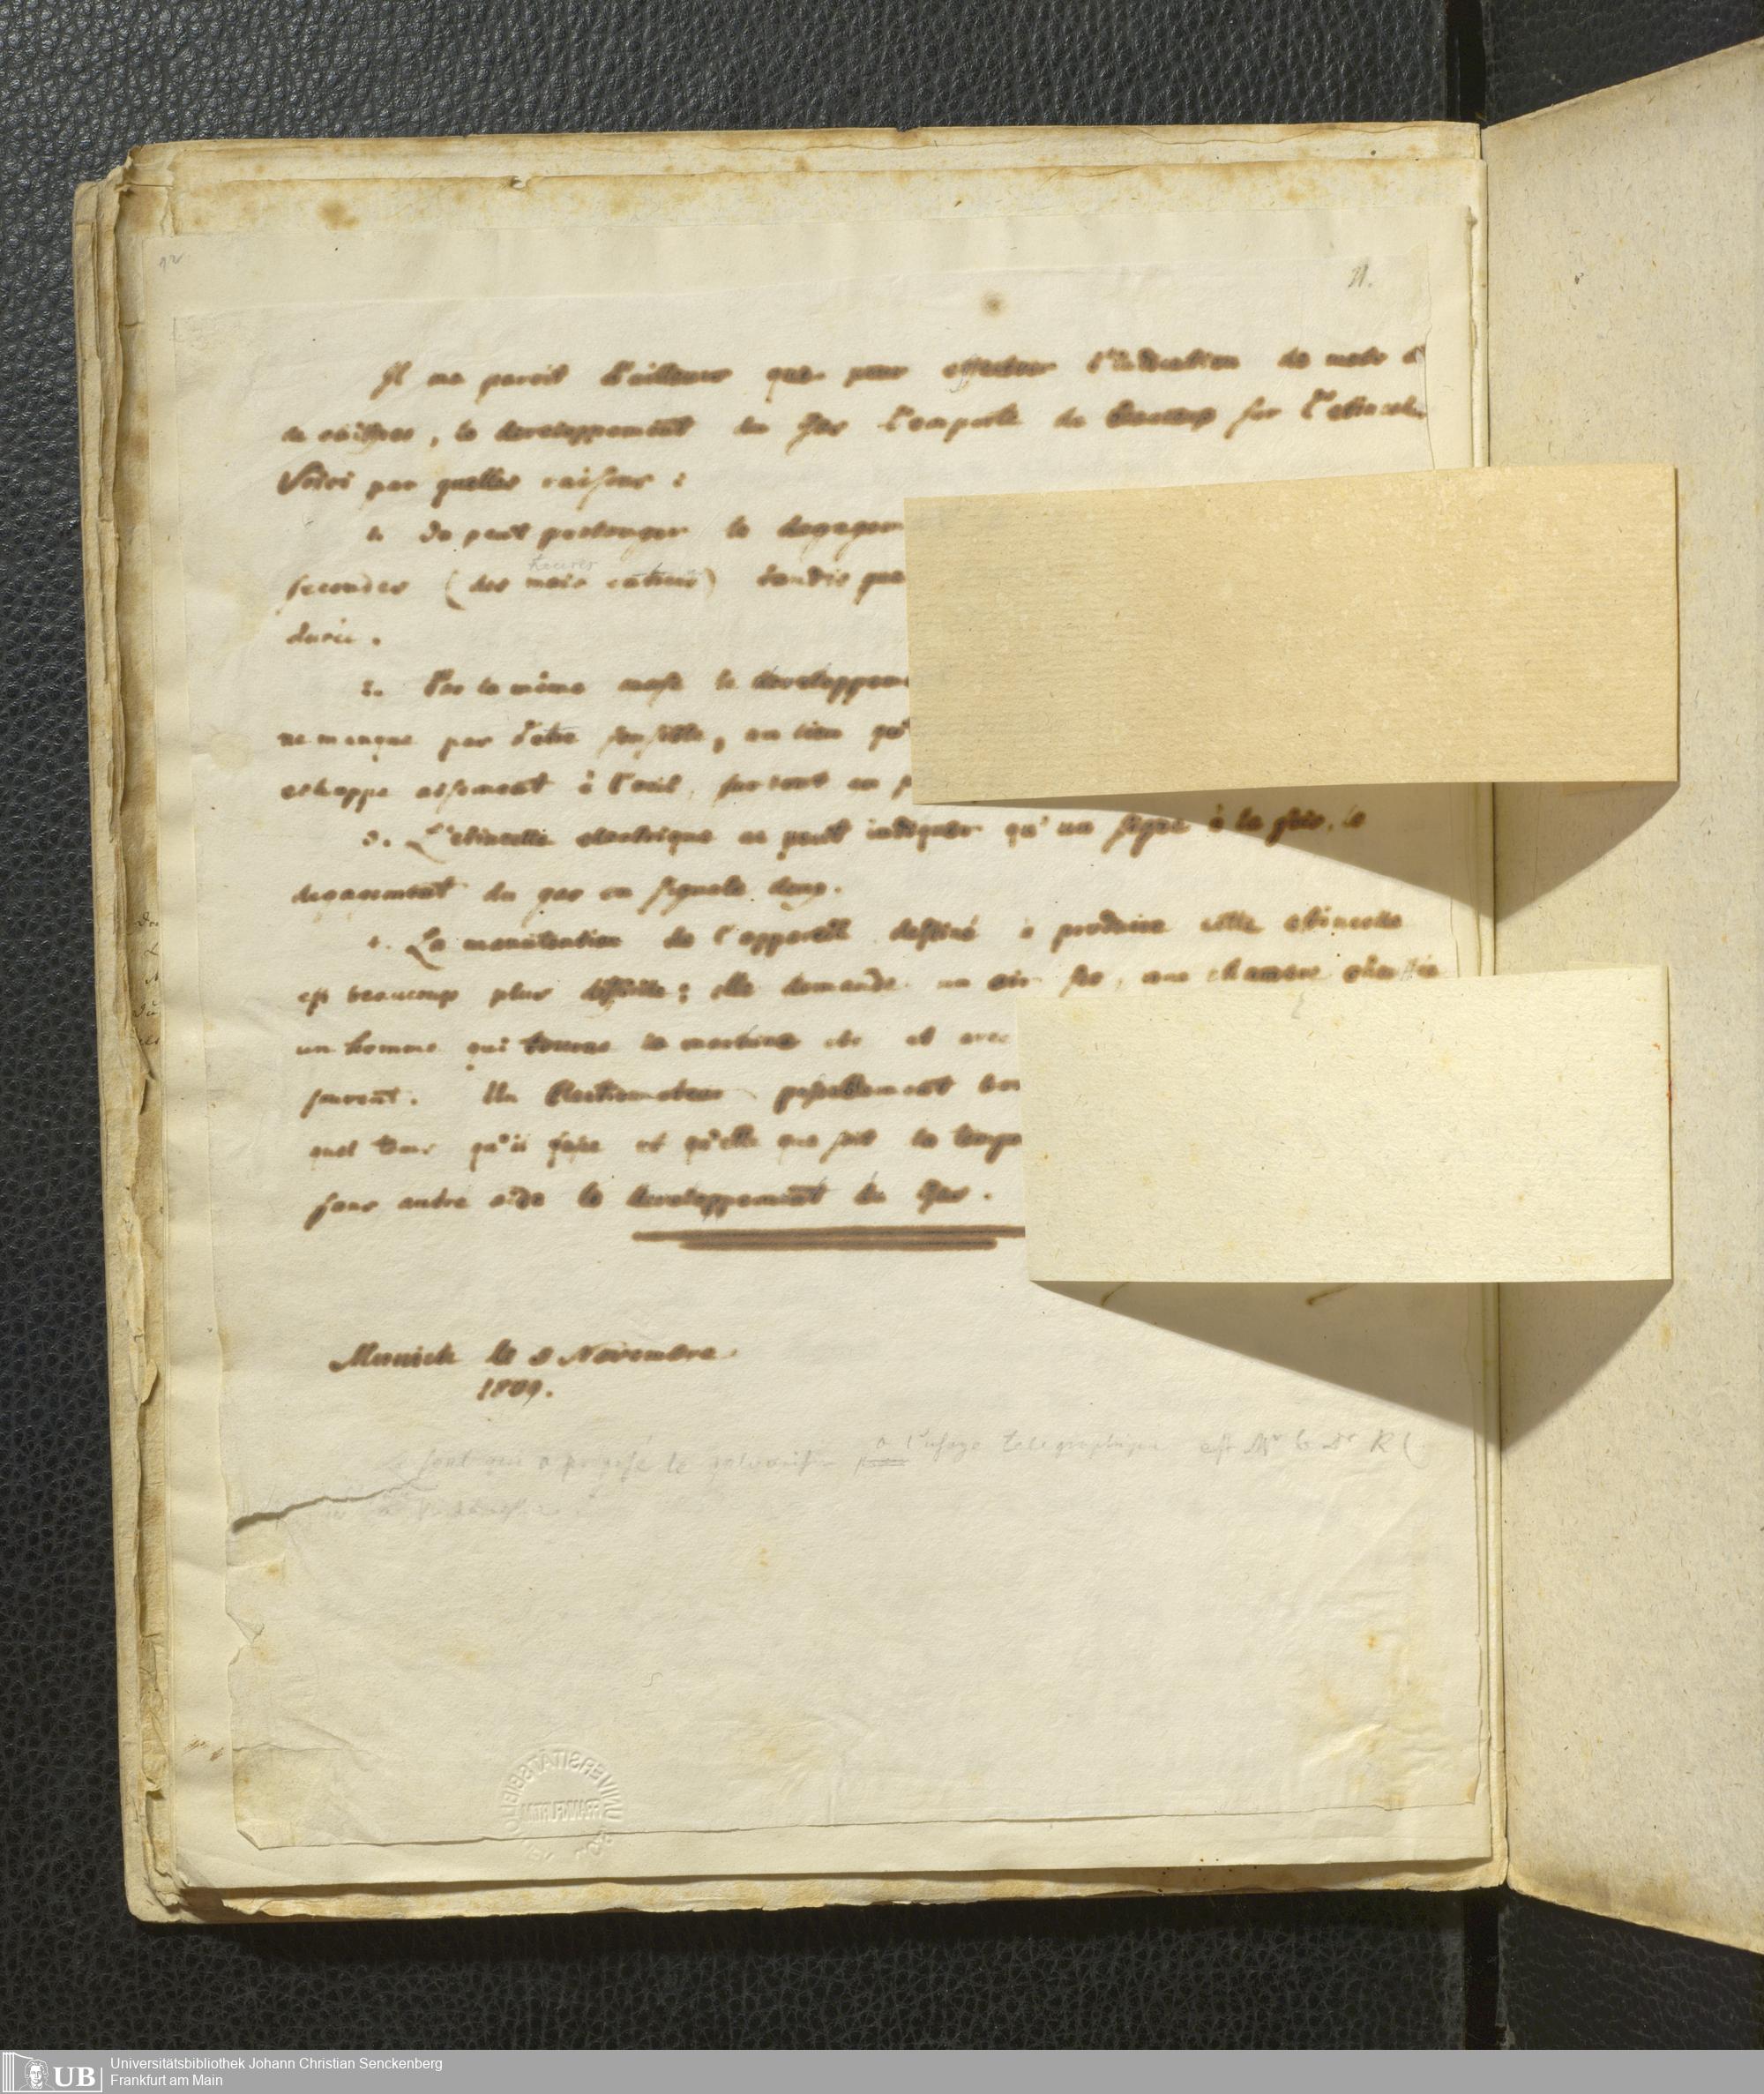 12
11.
Il me paroit d'ailleurs que pour effectuer l'indication de mots
de chiffres, le developpement du Gas l'emporte de beaucoup sur l'etincel
Voici par quelles raisons :
1. On peut prolonger le degagem
heures
secondes (des mois entiers) tandis que
durée.
2. Par la même le developpem
ne manque pas d'etre sensible, au lieu qu'
echappe aisement à l'oeil, surtout en
3. L'etincelle electrique ne peut indiquer qu'un signe à la fois, le
degagement du gas en signale deux.
4. La manutention de l'appareil destiné à produire cette etincelle
est beaucoup plus difficile ; elle demande un air sec, une chambre chauffée
un homme qui tourne la machine etc et avec
souvent. Un Electromoteur passablement bon
quel tems qu'il fasse et qu'elle que soit la tempe
sans autre aide le developpement du Gas.
Munich le 8 Novembre
1809.
Le seul qui a proposé le galvanisme pour a l'usage telegraphique est Mr le Dr
UNIVERSITÄTSBIBLIOTHEK
FRANKFURT
UB Universitätsbibliothek Johann Christian Senckenberg
Frankfurt am Main